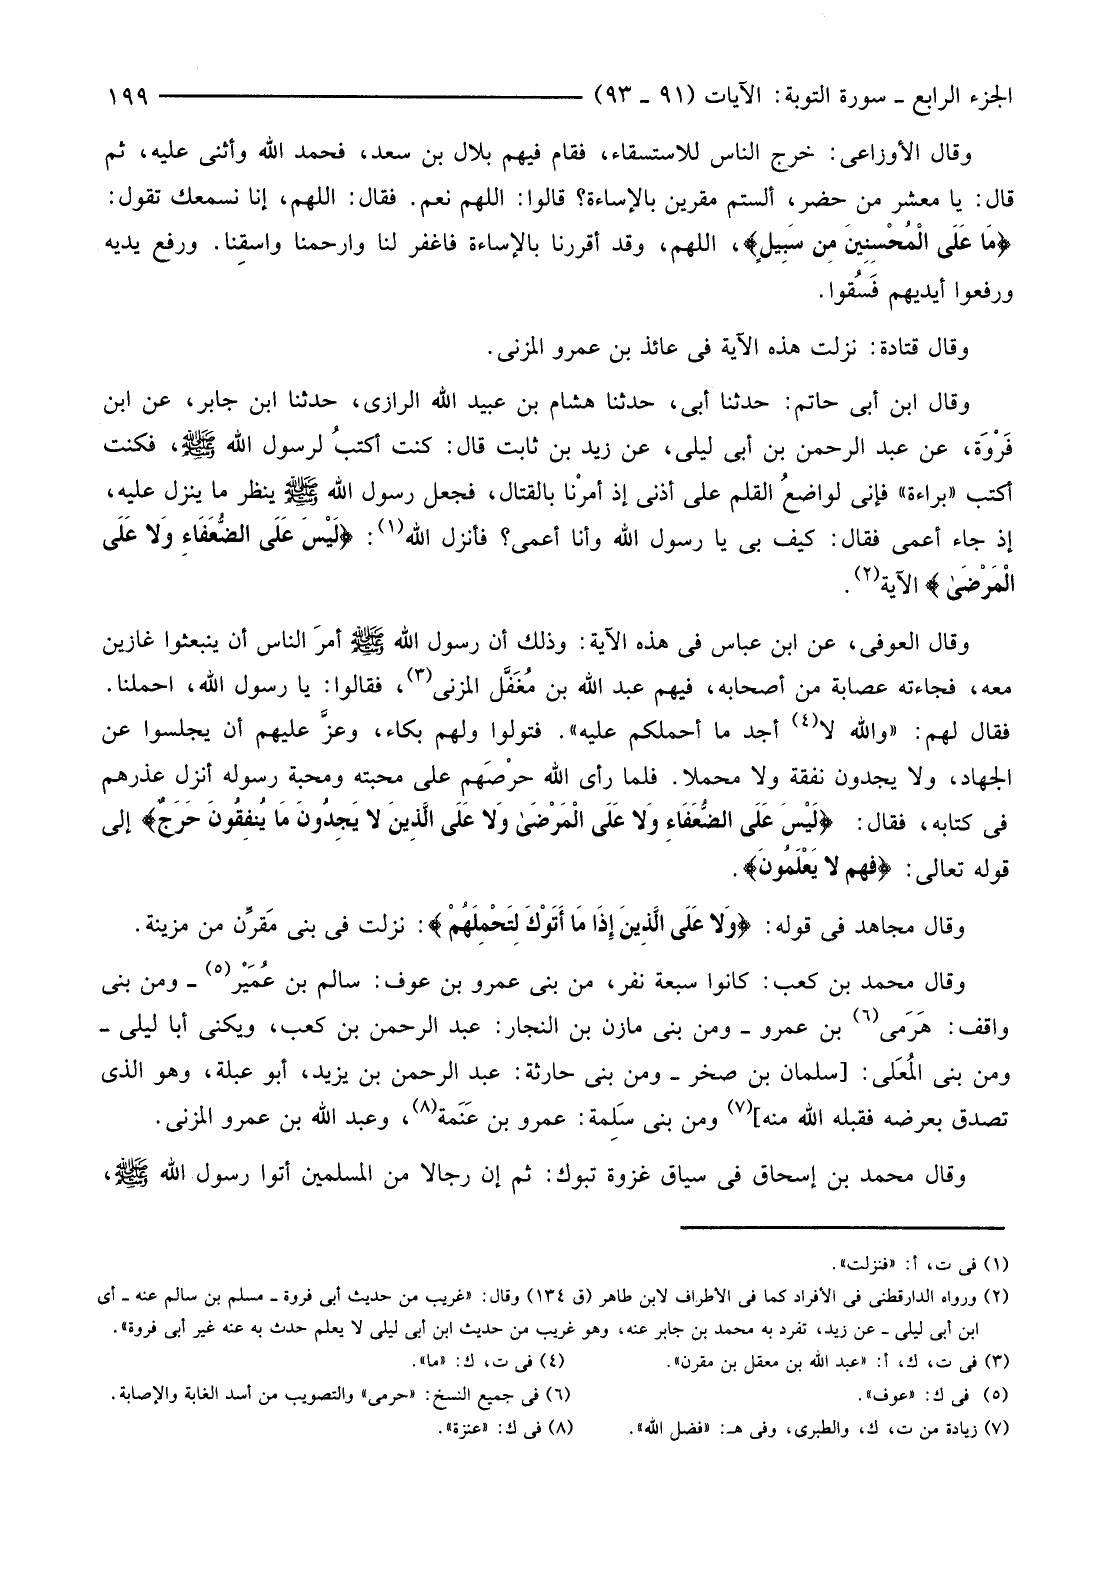 الجزء الرابع ـ سورة التوبة: الآيات (٩١ ـ ٩٣) ١٩٩
وقال الأوزاعى: خرج الناس للاستسقاء، فقام فيهم بلال بن سعد، فحمد الله وأثنى عليه، ثم
قال: يا معشر من حضر، ألستم مقرين بالإساءة؟ قالوا: اللهم نعم. فقال: اللهم، إنا نسمعك تقول:
﴿مَا عَلَى الْمُحْسِنِينَ مِن سَبِيلٍ﴾، اللهم، وقد أقررنا بالإساءة فاغفر لنا وارحمنا واسقِنا. ورفع يديه
ورفعوا أيديهم فَسُقوا.
وقال قتادة: نزلت هذه الآية فى عائذ بن عمرو المزنى.
وقال ابن أبى حاتم: حدثنا أبى، حدثنا هشام بن عبيد الله الرازى، حدثنا ابن جابر، عن ابن
فَرْوَة، عن عبد الرحمن بن أبى ليلى، عن زيد بن ثابت قال: كنت أكتبُ لرسول الله ﷺ، فكنت
أكتب «براءة» فإنى لواضعُ القلم على أذنى إذ أمرْنا بالقتال، فجعل رسول الله ﷺ ينظر ما ينزل عليه،
إذ جاء أعمى فقال: كيف بى يا رسول الله وأنا أعمى؟ فأنزل الله(١): ﴿لَيْسَ عَلَى الضُّعَفَاءِ وَلا عَلَى
الْمَرْضَىٰ﴾ الآية(٢).
وقال العوفى، عن ابن عباس فى هذه الآية: وذلك أن رسول الله ﷺ أمرَ الناس أن ينبعثوا غازين
معه، فجاءته عصابة من أصحابه، فيهم عبد الله بن مُغَفَّل المزنى(٣)، فقالوا: يا رسول الله، احملنا.
فقال لهم: «والله لا(٤) أجد ما أحملكم عليه». فتولوا ولهم بكاء، وعزَّ عليهم أن يجلسوا عن
الجهاد، ولا يجدون نفقة ولا محملا. فلما رأى الله حرْصَهم على محبته ومحبة رسوله أنزل عذرهم
فى كتابه، فقال: ﴿لَيْسَ عَلَى الضُّعَفَاءِ وَلا عَلَى الْمَرْضَىٰ وَلا عَلَى الَّذِينَ لا يَجِدُونَ مَا يُنفِقُونَ حَرَجٌ﴾ إلى
قوله تعالى: ﴿فهم لا يَعْلَمُونَ﴾.
وقال مجاهد فى قوله: ﴿وَلا عَلَى الَّذِينَ إِذَا مَا أَتَوْكَ لِتَحْمِلَهُمْ﴾: نزلت فى بنى مَقرِّن من مزينة.
وقال محمد بن كعب: كانوا سبعة نفر، من بنى عمرو بن عوف: سالم بن عُمَيْر(٥) ـ ومن بنى
واقف: هَرَمى(٦) بن عمرو ـ ومن بنى مازن بن النجار: عبد الرحمن بن كعب، ويكنى أبا ليلى ـ
ومن بنى المُعَلى: [سلمان بن صخر ـ ومن بنى حارثة: عبد الرحمن بن يزيد، أبو عبلة، وهو الذى
تصدق بعرضه فقبله الله منه](٧) ومن بنى سَلِمة: عمرو بن عَنَمة(٨)، وعبد الله بن عمرو المزنى.
وقال محمد بن إسحاق فى سياق غزوة تبوك: ثم إن رجالا من المسلمين أتوا رسول الله ﷺ،
(١) فى ت، أ: «فنزلت».
(٢) ورواه الدارقطنى فى الأفراد كما فى الأطراف لابن طاهر (ق ١٣٤) وقال: «غريب من حديث أبى فروة ـ مسلم بن سالم عنه ـ أى
ابن أبى ليلى ـ عن زيد، تفرد به محمد بن جابر عنه، وهو غريب من حديث ابن أبى ليلى لا يعلم حدث به عنه غير أبى فروة».
(٣) فى ت، ك، أ: «عبد الله بن معقل بن مقرن». (٤) فى ت، ك: «ما».
(٥) فى ك: «عوف». (٦) فى جميع النسخ: «حرمى» والتصويب من أسد الغابة والإصابة.
(٧) زيادة من ت، ك، والطبرى، وفى هـ: «فضل الله». (٨) فى ك: «عنزة».